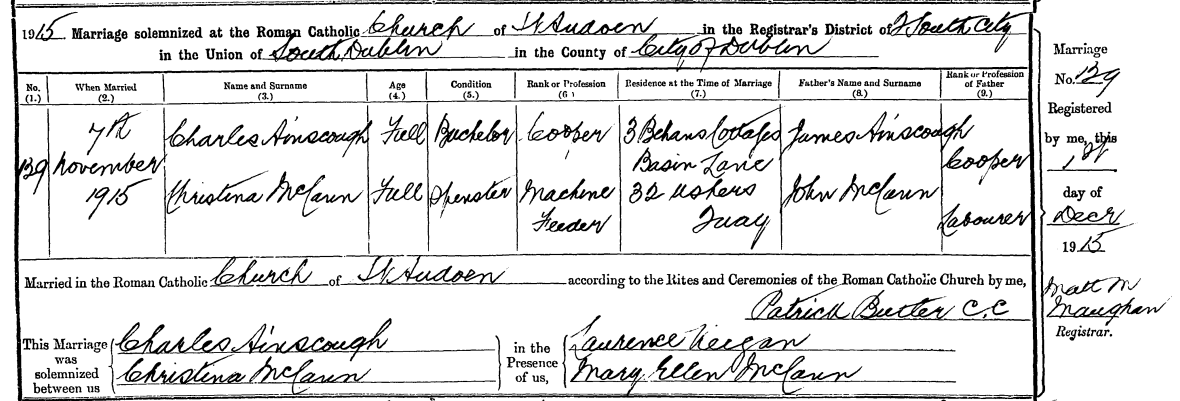 1915 Marriage solemnized at the Roman Catholic Church of St Audoen in the Registrar's District of 2 South City
in the Union of South Dublin in the County of City of Dublin
No. (1.) When Married (2.) Name and Surname (3.) Age (4.) Condition (5.) Rank or Profession (6.) Residence at the Time of Marriage (7.) Father's Name and Surname (8.) Rank or Profession of Father (9.)
139 7th November 1915
Charles Ainscough Full Bachelor Cooper 3 Behans Cottages Basin Lane James Ainscough Cooper
Christina McCann Full Spinster Machine Feeder 32 Ushers Quay John McCann Labourer
Married in the Roman Catholic Church of St Audoen according to the Rites and Ceremonies of the Roman Catholic Church by me,
Patrick Butler C.C
This Marriage was solemnized between us
Charles Ainscough
Christina McCann
in the Presence of us,
Laurence Keegan
Mary Ellen McCann
Marriage
No. 139
Registered
by me, this
1st
day of
Decr
1915
Matt M
Maughan
Registrar.